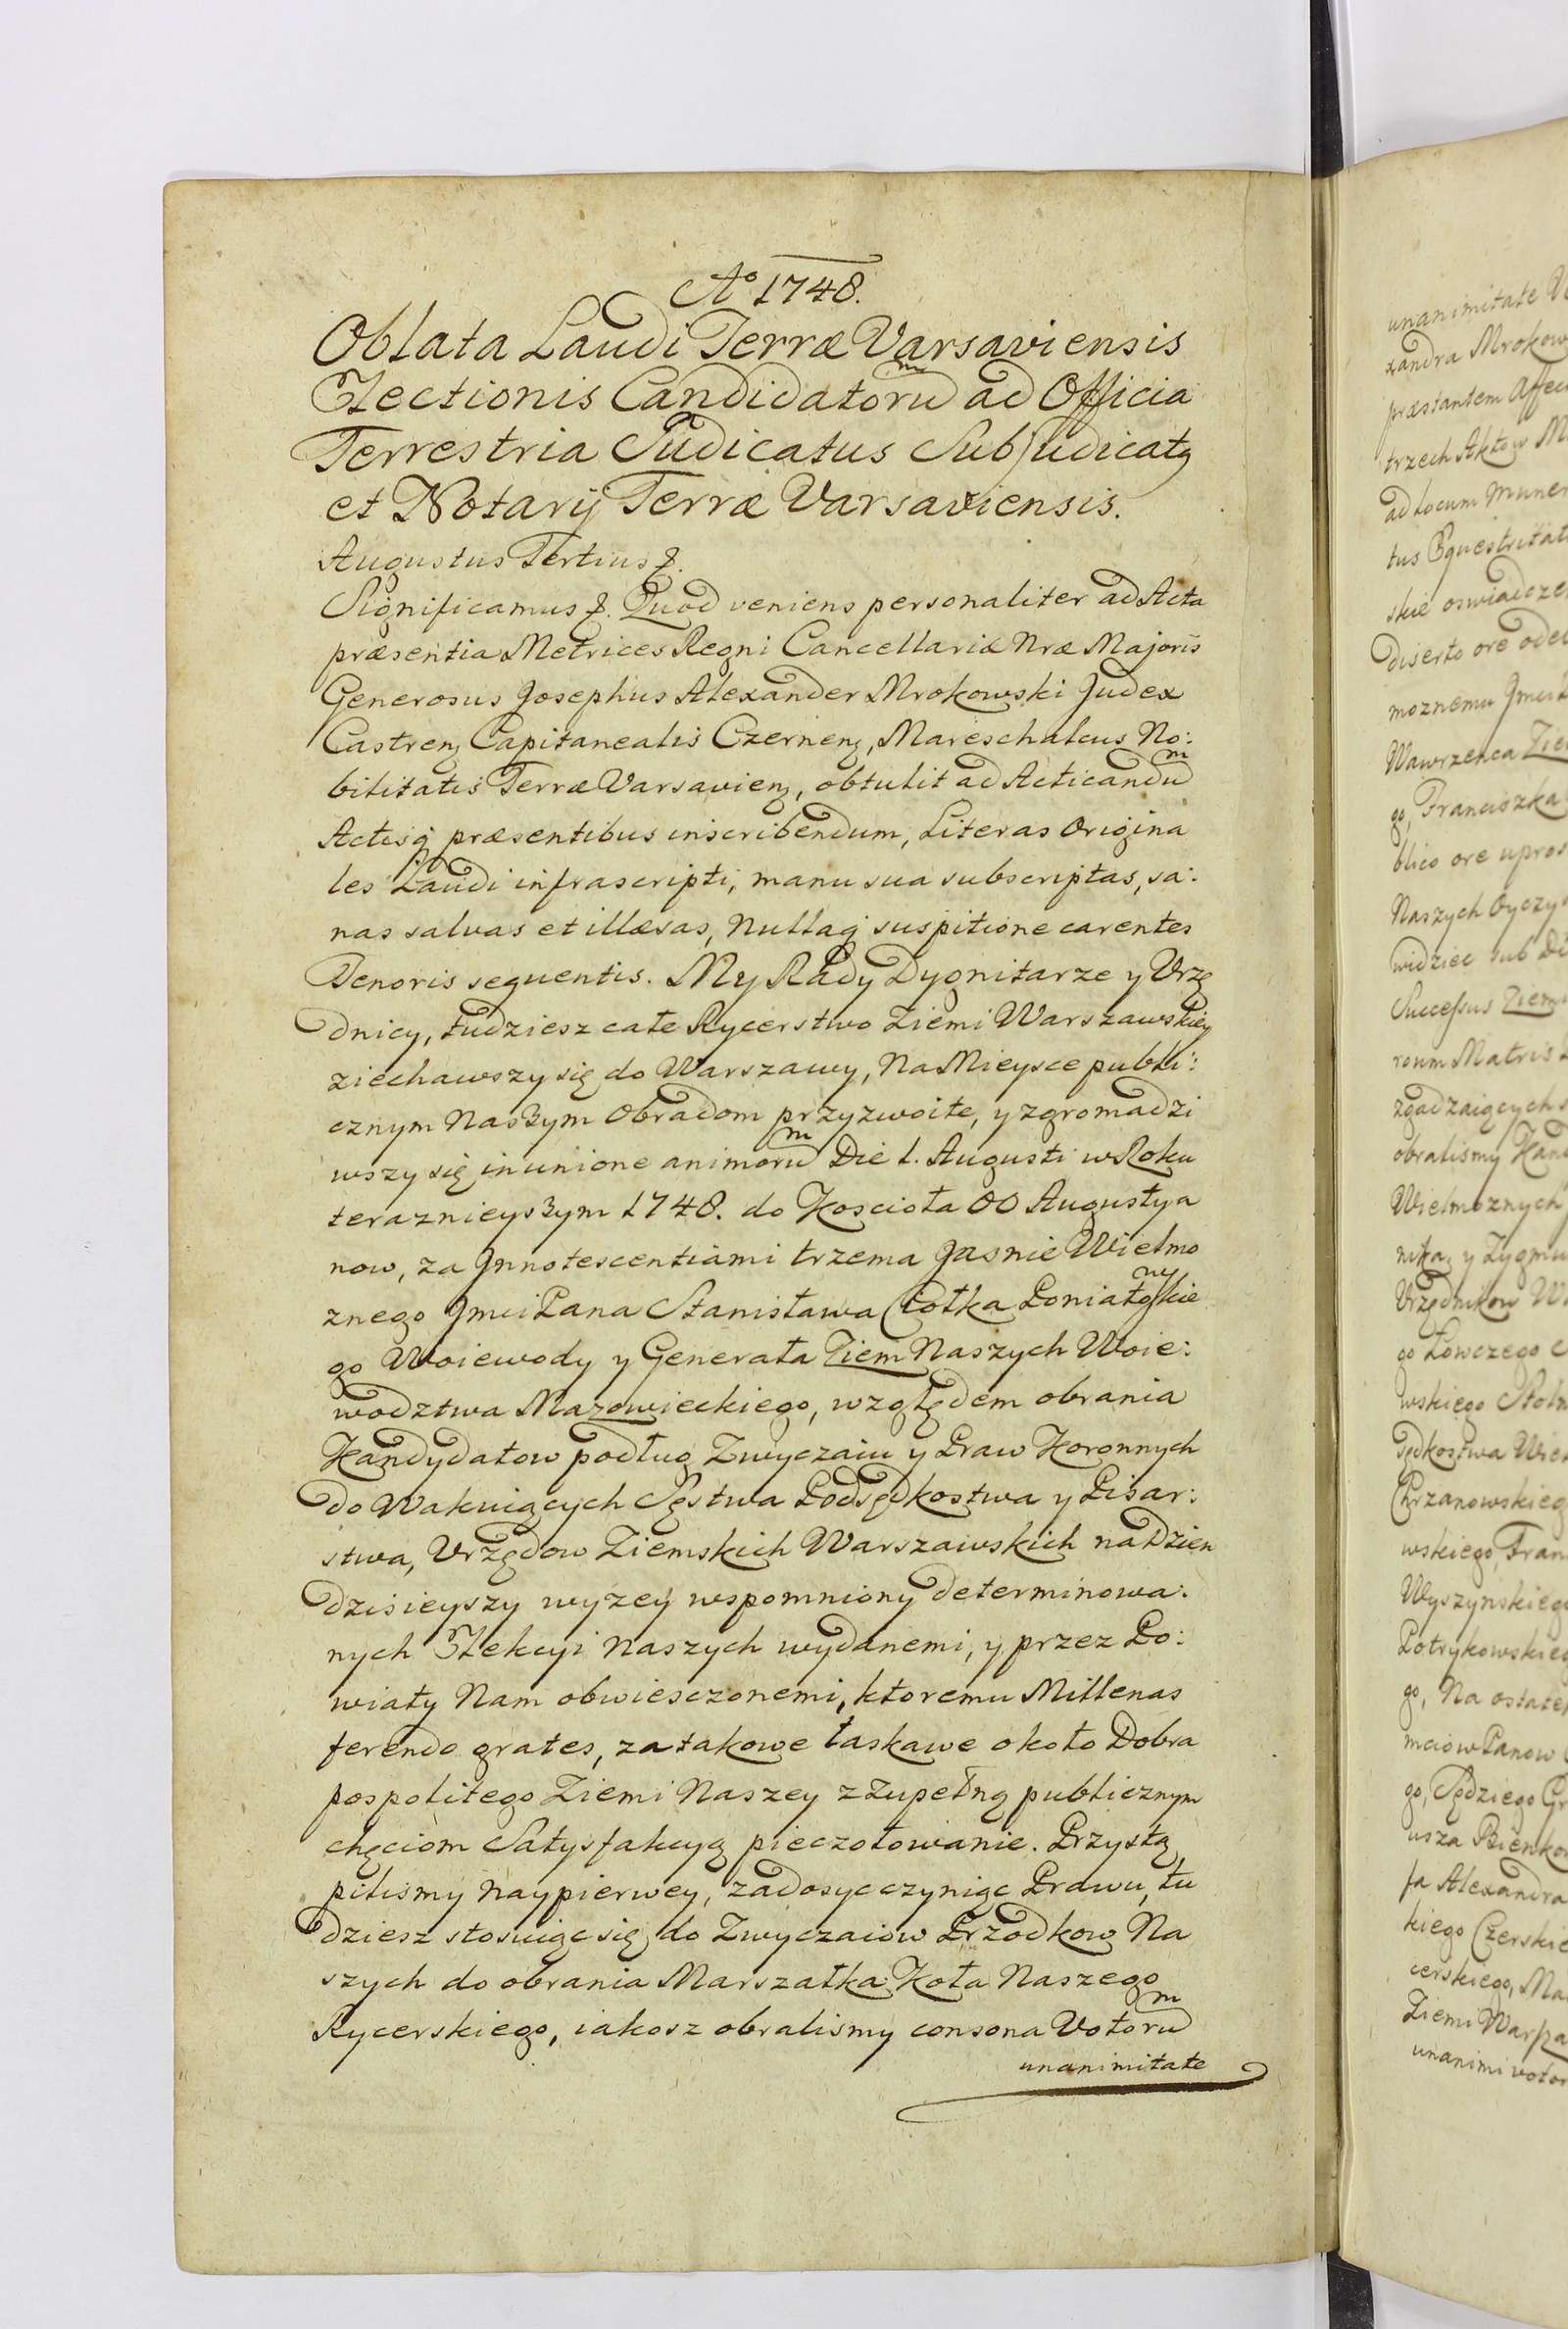 Aͦ 1748.
Oblata Laudi Terræ Varsaviensis
Electionis Candidatoruͫ ad Officia
Terrestria Judicatus Subjudicatꝯ
et Notarij Terræ Varsaviensis.
Augustus Tertius &.
Significamus &. Quod veniens personaliter ad Acta
præsentia Metrices Regni Cancellariæ Nræ Majoris
Generosus Josephus Alexander Mrokowski Judex
Castrenꝫ Capitanealis Czernenꝫ, Mareschalcus No:
bilitatis Terræ Varsavienꝫ, obtulit ad Acticanduͫ
Actisq præsentibus inscribendum, Literas Origina
les Laudi infrascripti, manu sua subscriptas, sa:
nas salvas et illæsas, Nullaq suspitione carentes
Tenoris sequentis. My Rady Dygnitarze y Vrzę
dnicy, tudziesz całe Rycerstwo Ziemi Warszawskiey
ziechawszy się do Warszawy, Na Mieysce publi:
cznym Naszym Obradom przyzwoite, y zgromadzi
wszy się in unione animoruͫ Die 1. Augusti w Roku
teraznieyszym 1748. do Koscioła OO Augustya
now, za Jnnotescentiami trzema Jasnie Wielmo
znego Jmci Pana Stanisława Ciołka Poniatowskie
go Woiewody y Generała Ziem Naszych Woie:
wodztwa Mazowieckiego, względem obrania
Kandydatow podług Zwyczaiu y Praw Koronnych
do Wakuiących Sęstwa Podsędkostwa y Pisar:
stwa, Vrzędow Ziemskich Warszawskich na Dzien
dzisieyszy wyzey wspomniony determinowa:
nych Elekcyi Naszych wydanemi, y przez Po:
wiaty Nam obwiesczonemi, ktoremu Millenas
ferendo grates, za takowe łaskawe około Dobra
pospolitego Ziemi Naszey z Zupełną publicznym
chęciom Satysfakcyą pieczołowanie. Przystą
pilismy Naypierwey, zadosyc czyniąc Prawu, tu
dziesz stosuiąc się do Zwyczaiow Przodkow Na
szych do obrania Marszałka Koła Naszego
Rycerskiego, iakosz obralismy consona Votoruͫ
unanimitate
unanimitate
xandra Mrokow
præstantem Affec
trzech Aktow
ad locum Muner
tus Equestritat
skie oswiadcze
diserto ore
moznemu Jmci
Wawrzenca
go, Franciszka
blico ore upros
Naszych Oyczy
widziec sub
Succeſsus Ziemi
rorum Matris
zgadzaiących
obralismy Kand
Wielmoznych
nika, y Zygmu
Vrzędnikow
go Łowczego
wskiego Stoln
sędkostwa
Chrzanowskieg
wskiego, Fran
Wyszynskieg
Potrykowskie
go, Na ostate
mciow Panow
go, Sędziego
usza Bienko
fa Alexandra
kiego Czerskie
cerskiego,
Ziemi Warſza
unanimi votor